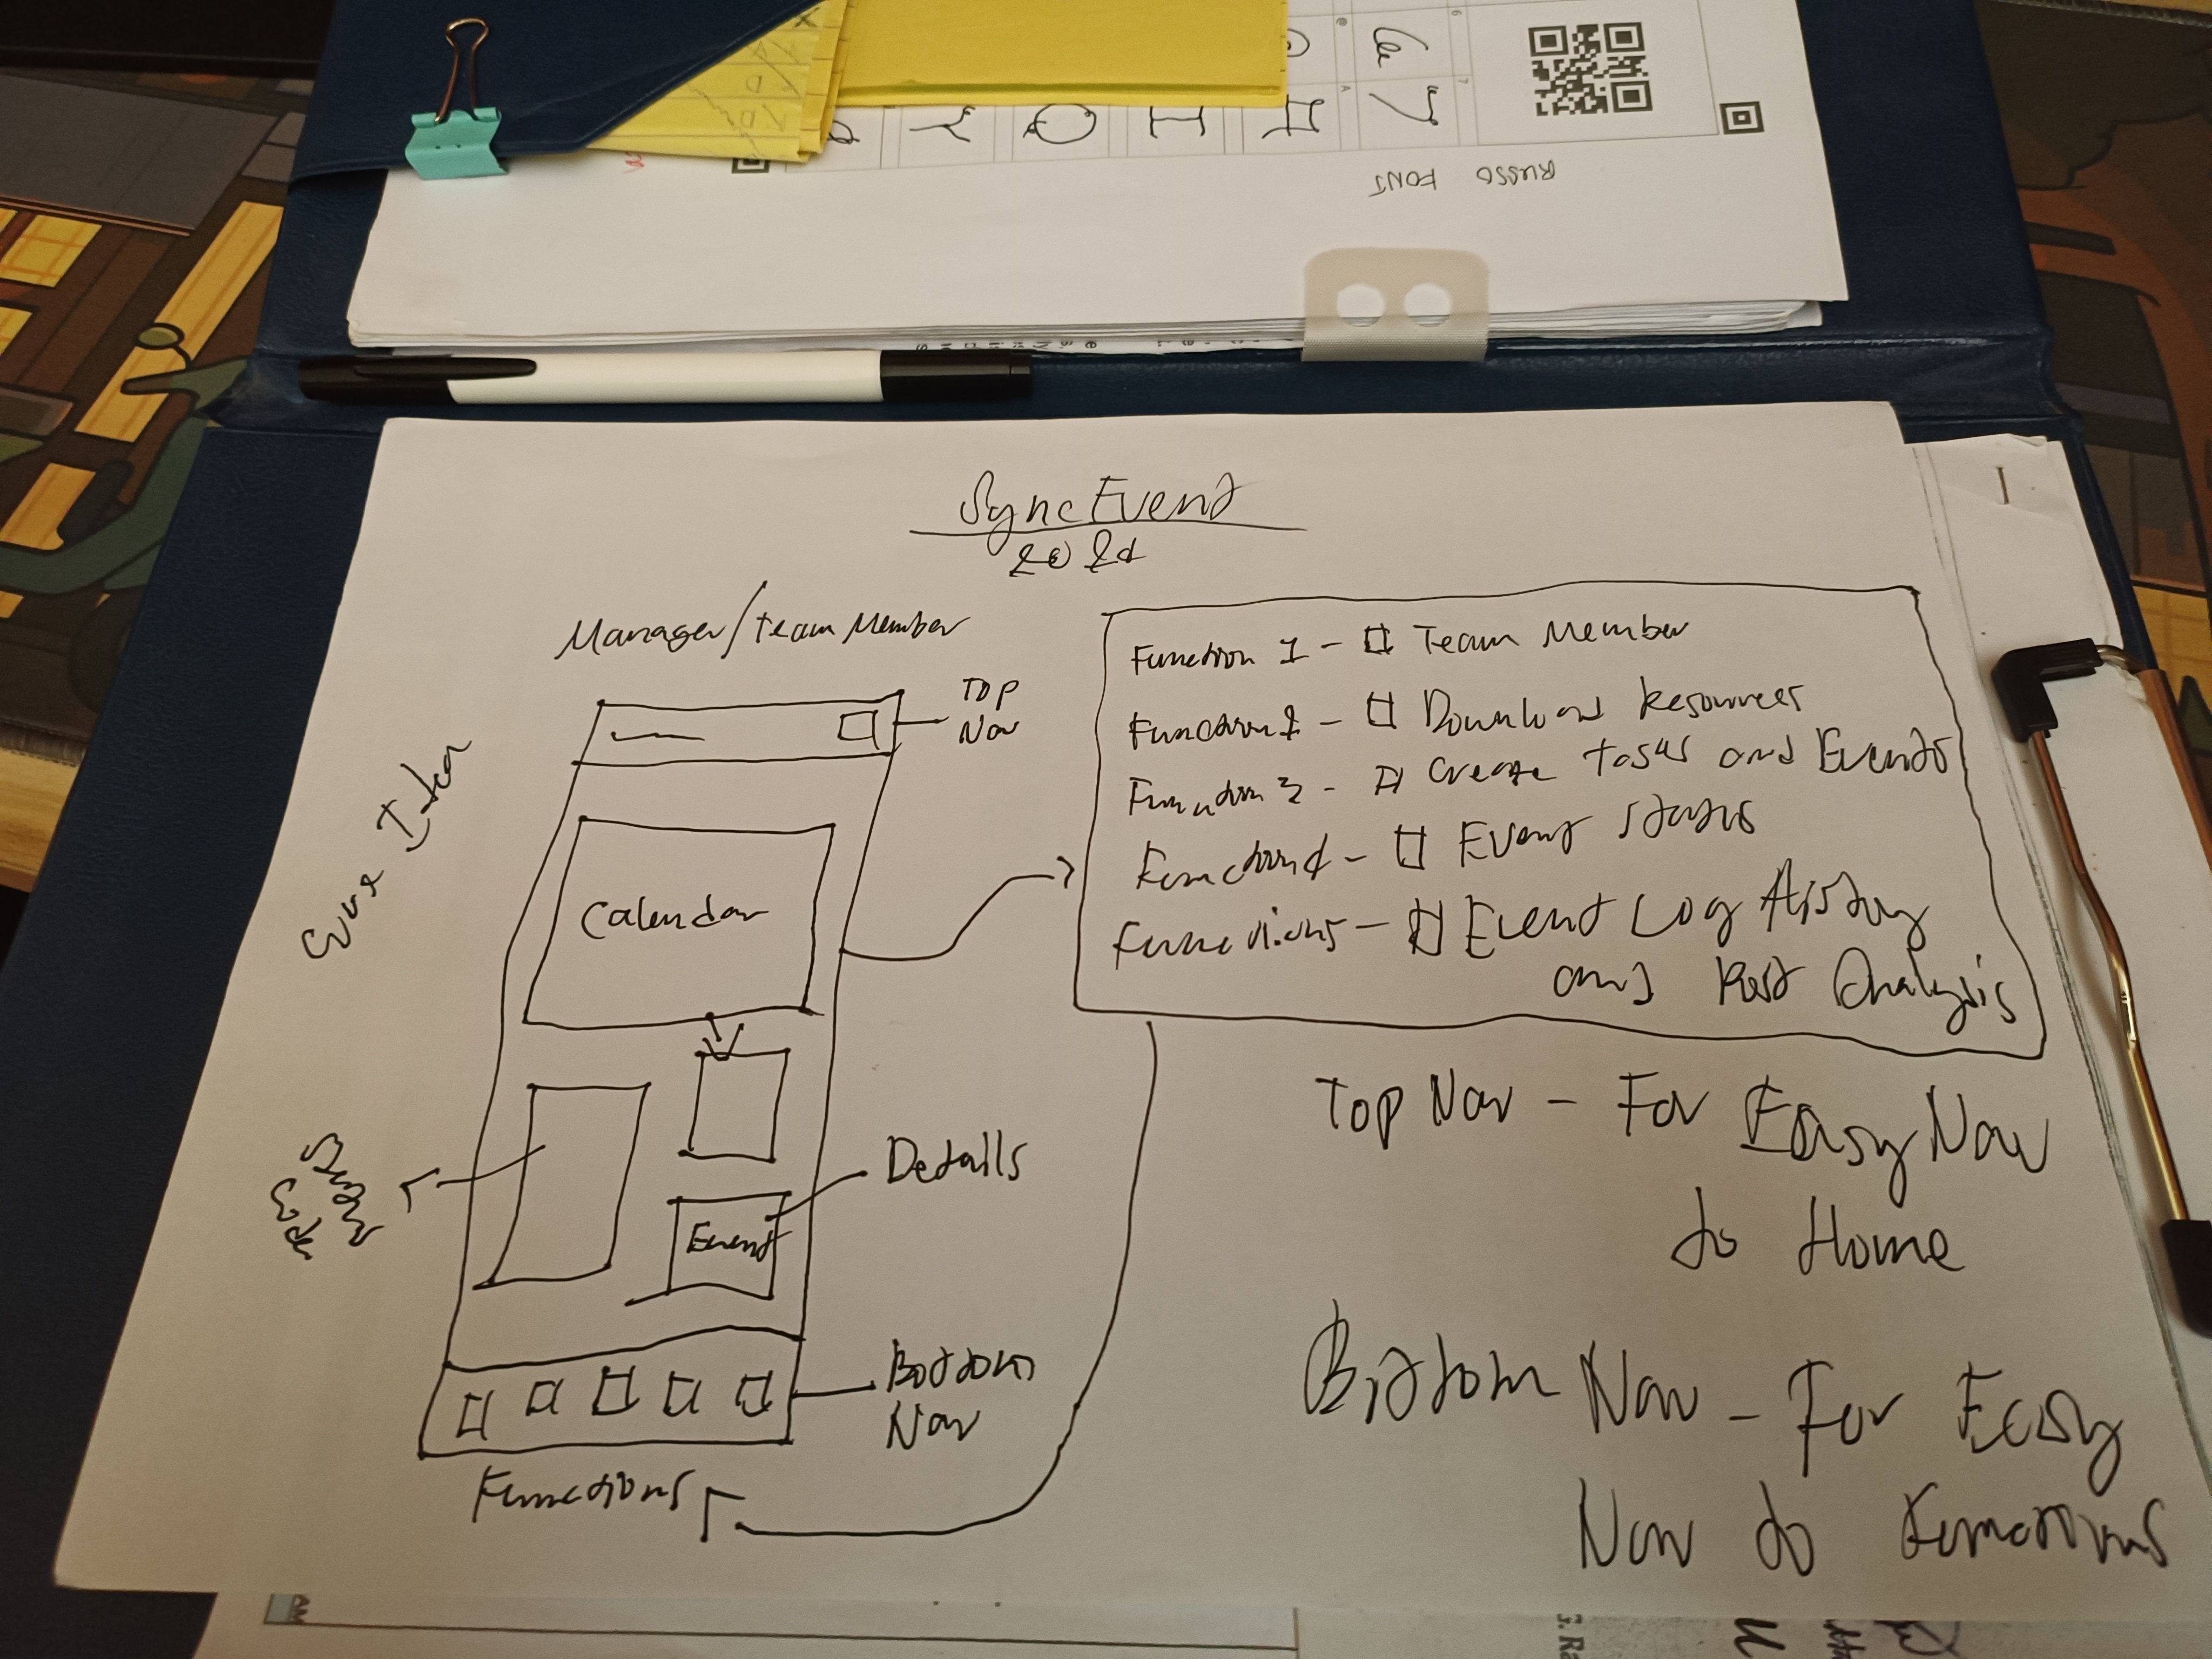 RUSSO FONT
SyncEvent
Manager/Team Member
TOP
Nav
Calendar
Details
Event
Bottom
Nav
Functions
Function 1 - Team Member
Function 2 - Download Resources
Function 3 - Create Tasks and Events
Function 4 - Event Status
Function 5 - Event Log History
and Post Analysis
Top Nav - For Easy Nav
to Home
Bottom Nav - For Easy
Nav to Functions